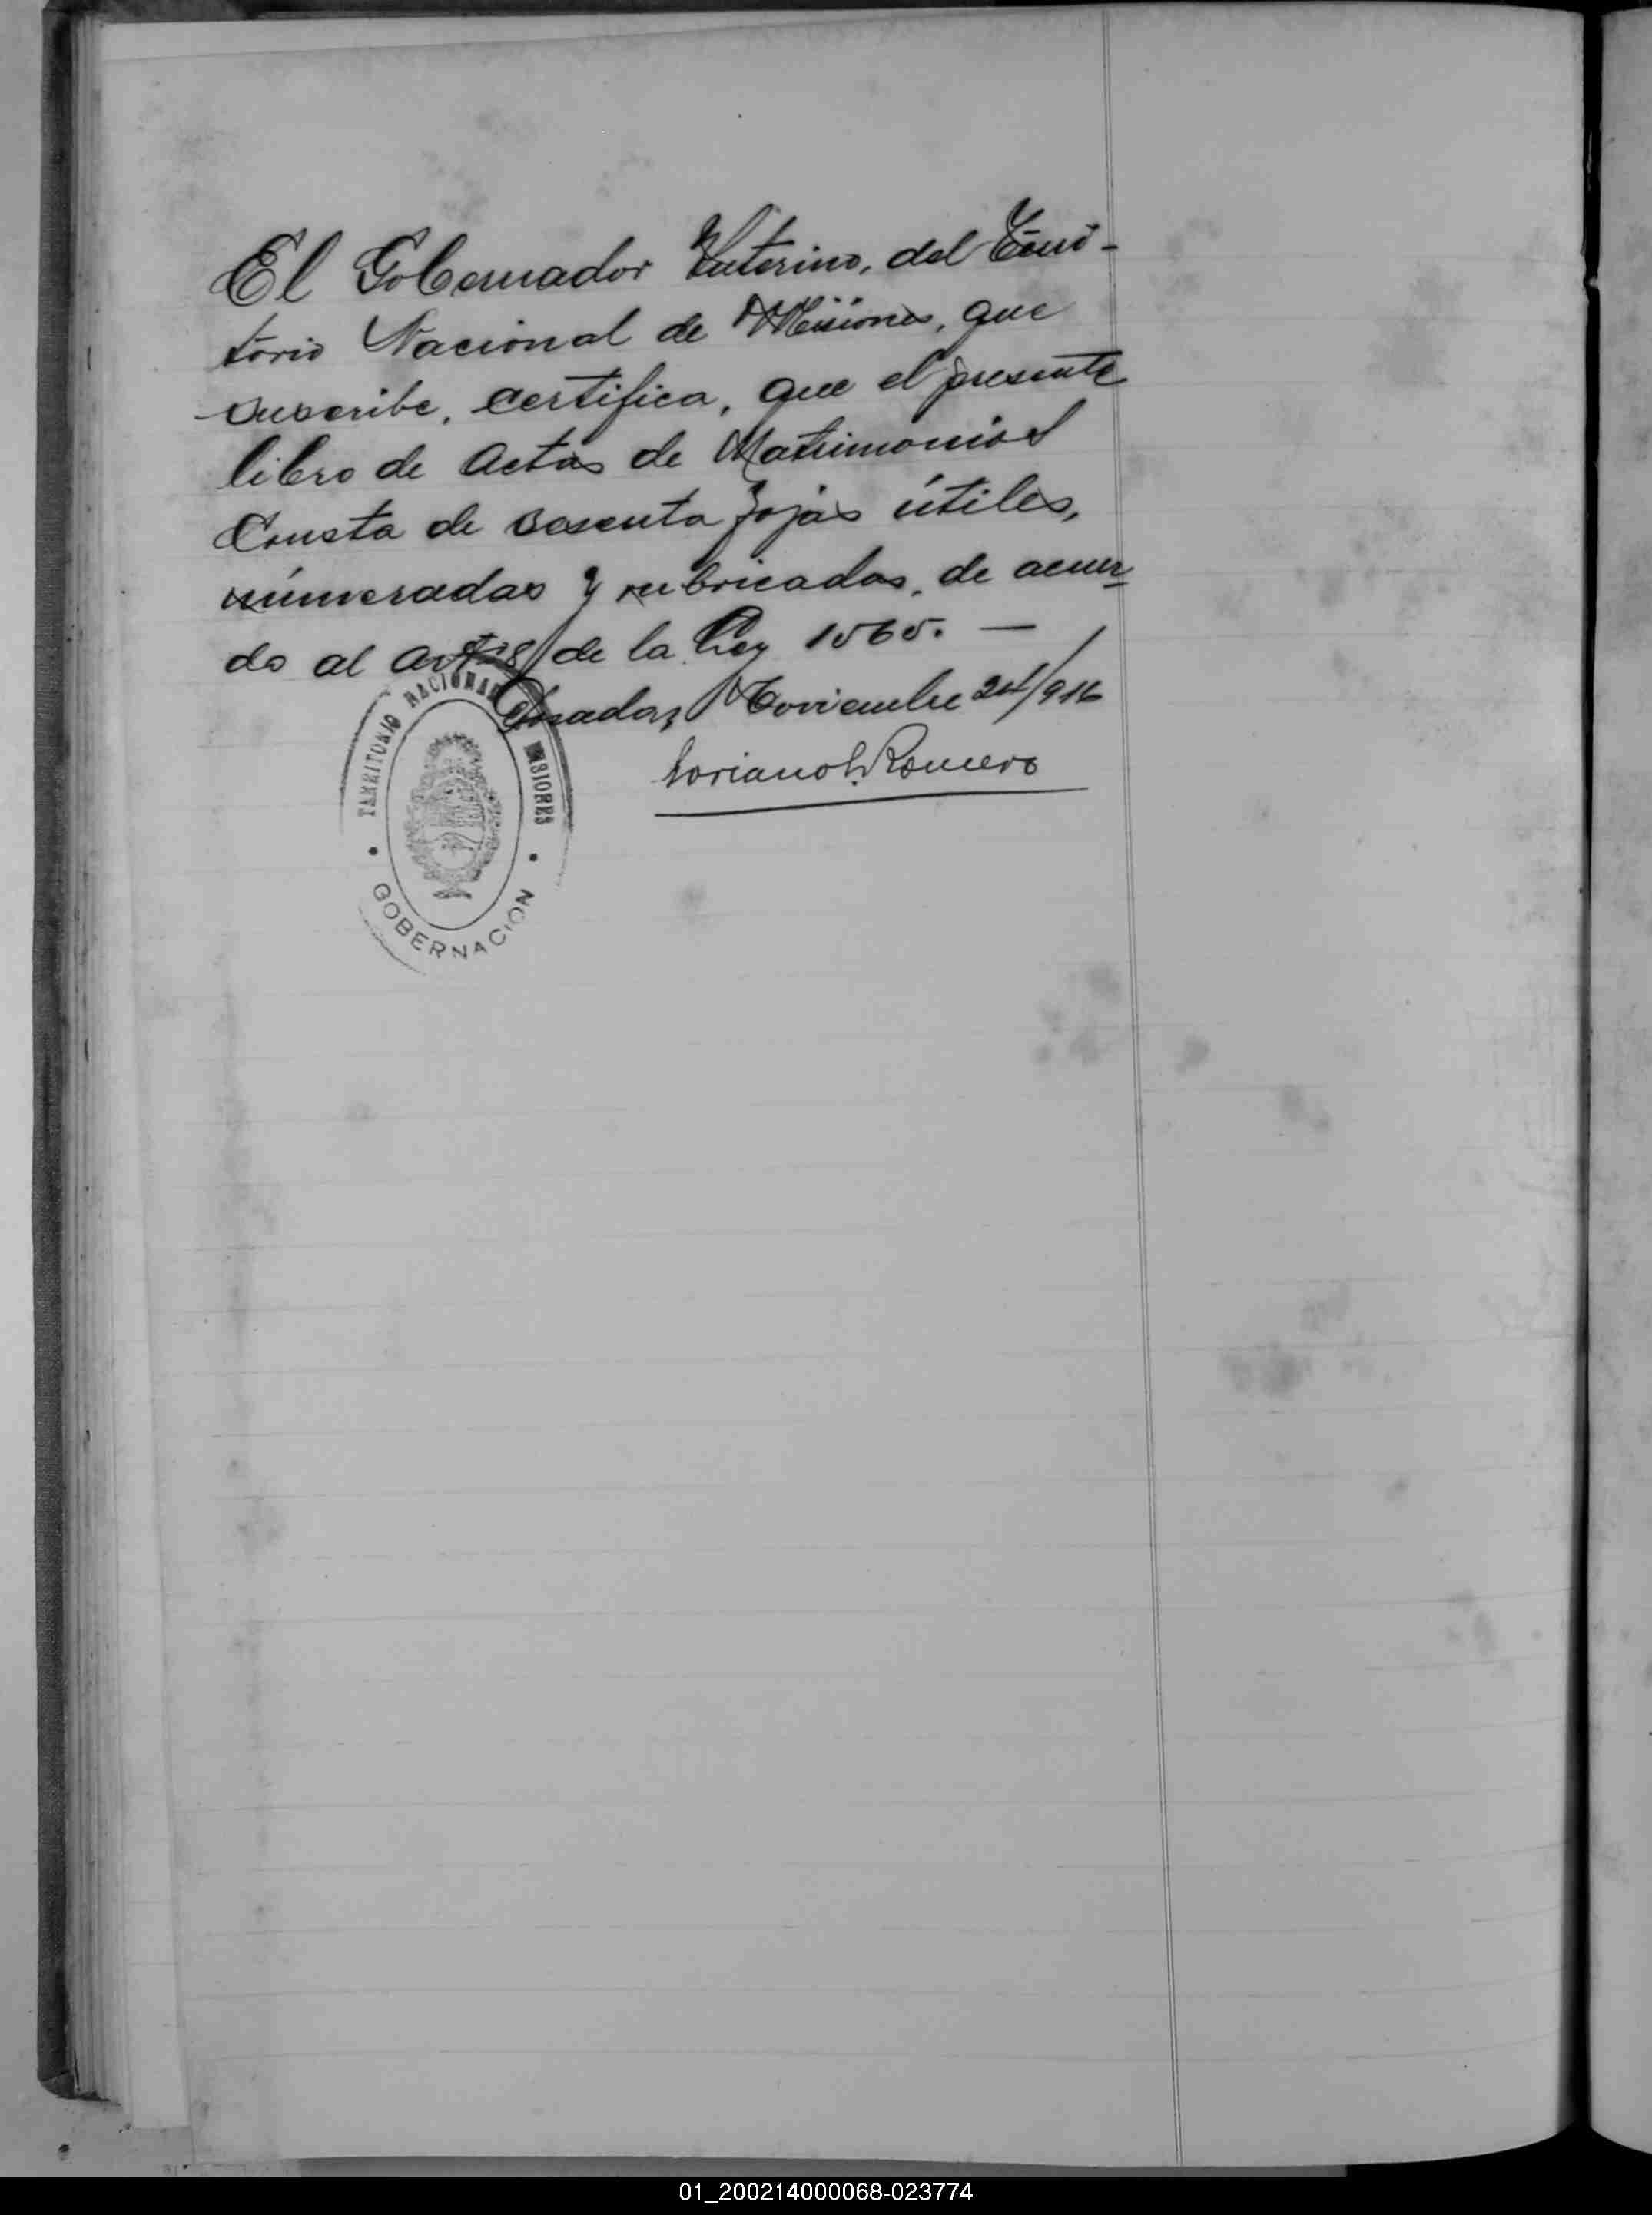 El Gobernador Interino, del Terri-
torio Nacional de Misiones, que
suscribe, certifica, que el presente
libro de Actas de Matrimonios
Consta de sesenta fojas útiles,
númeradas y rubricadas, de acuer-
do al Art 8 de la Ley 1565. —
Posadas, Noviembre 24/916
Soriano Romero
TERRITORIO NACIONAL MISIONES
GOBERNACION
01_200214000068-023774